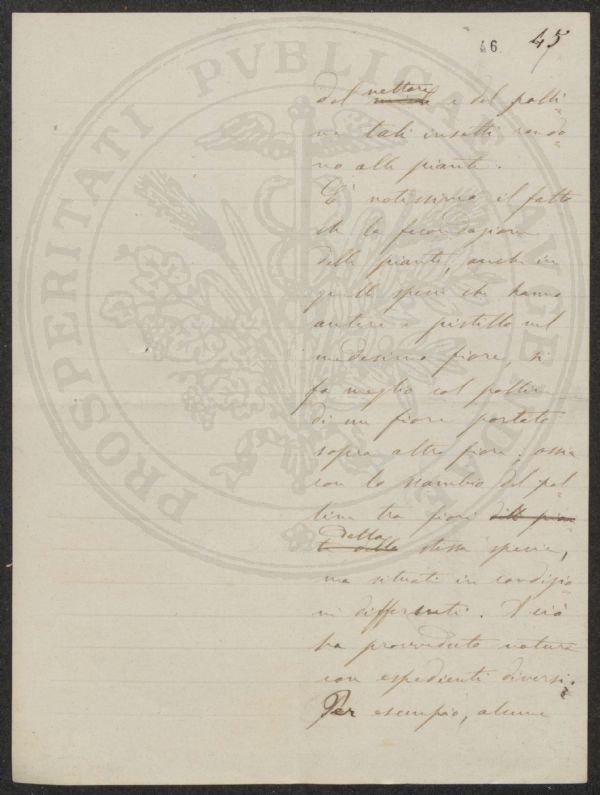 46. 45
del nettare e del polli
ne tali insetti rendo
no alle piante.
E' notissimo il fatto
che la fecondazione
delle piante, anche in
quelle specie che hanno
antere e pistillo nel
medesimo fiore, si
fa meglio col polline
di un fiore portato
sopra altro fiore; ossia
con lo scambio del pol
line tra fiori delle pian
te della della stessa specie,
ma situati in condizio
ni differenti. A ciò
ha provveduto natura
con espedienti diversi.
Per esempio, alcune
PROSPERITATI PVBLICAE AVGENDAE